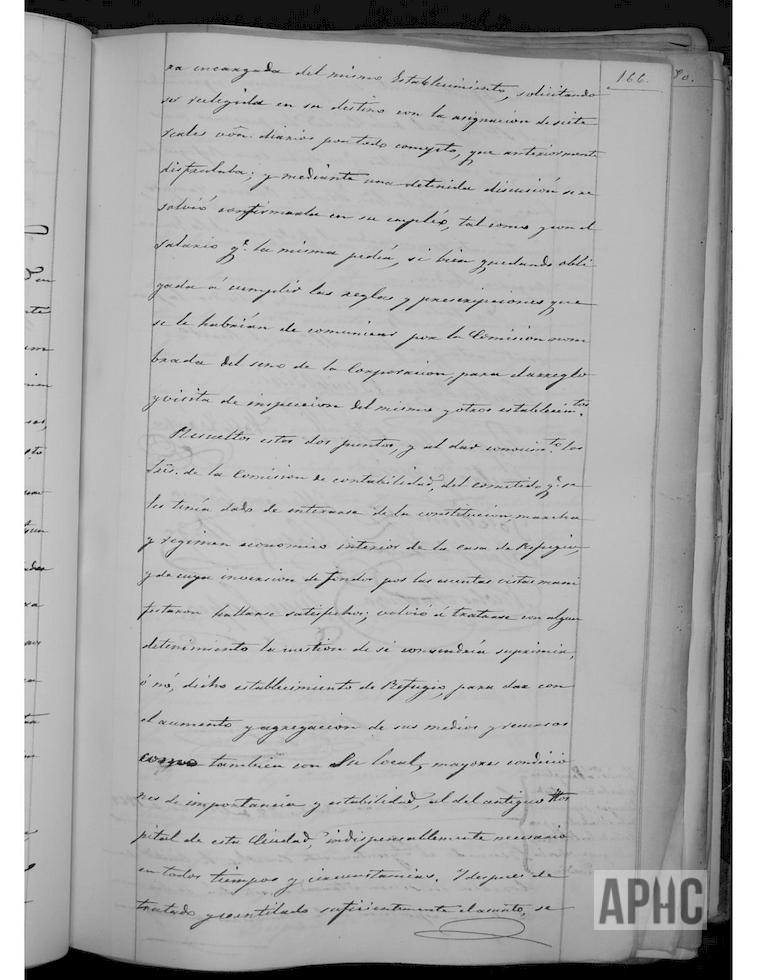 166.
ra encargada del mismo Establecimiento, solicitando
ser relegida en su destino con la asignacion de siete
reales vón. diarios por todo computo, que anteriormente
disfrutaba; y mediante una detenida discusión se re
solvió confirmarla en su empléo, tal como y con el
salario qe. la misma pedía, si bien quedando obli
gada á cumplir las reglas y prescripciones que
se le habrían de comunicar por la Comision nom
brada del seno de la Corporacion, para el arreglo
y visita de inspeccion del mismo y otros establecimtos.
Resueltos estos dos puntos, y al dar conocimto. los
Sres. de la Comision de contabilidad, del cometido qe. se
les tenía dado de enterarse de la constitucion, marcha
y regimen economico interior de la casa de Refugio,
y de cuya inversion de fondos por las cuentas vistas mani
festaron hallarse satisfechos; volvió á tratarse con algun
detenimiento la cuestion de si convendría suprimir,
ó nó, dicho establecimiento de Refugio, para dar con
el aumento y agregacion de sus medios y recursos
como también con su local, mayores condicio
nes de importancia y estabilidad, al del antiguo Hos
pital de esta Ciudad, indispensablemente necesario
en todos tiempos y circunstancias. Y despues de
tratado y ventilado suficientemente el asunto, se
APHC